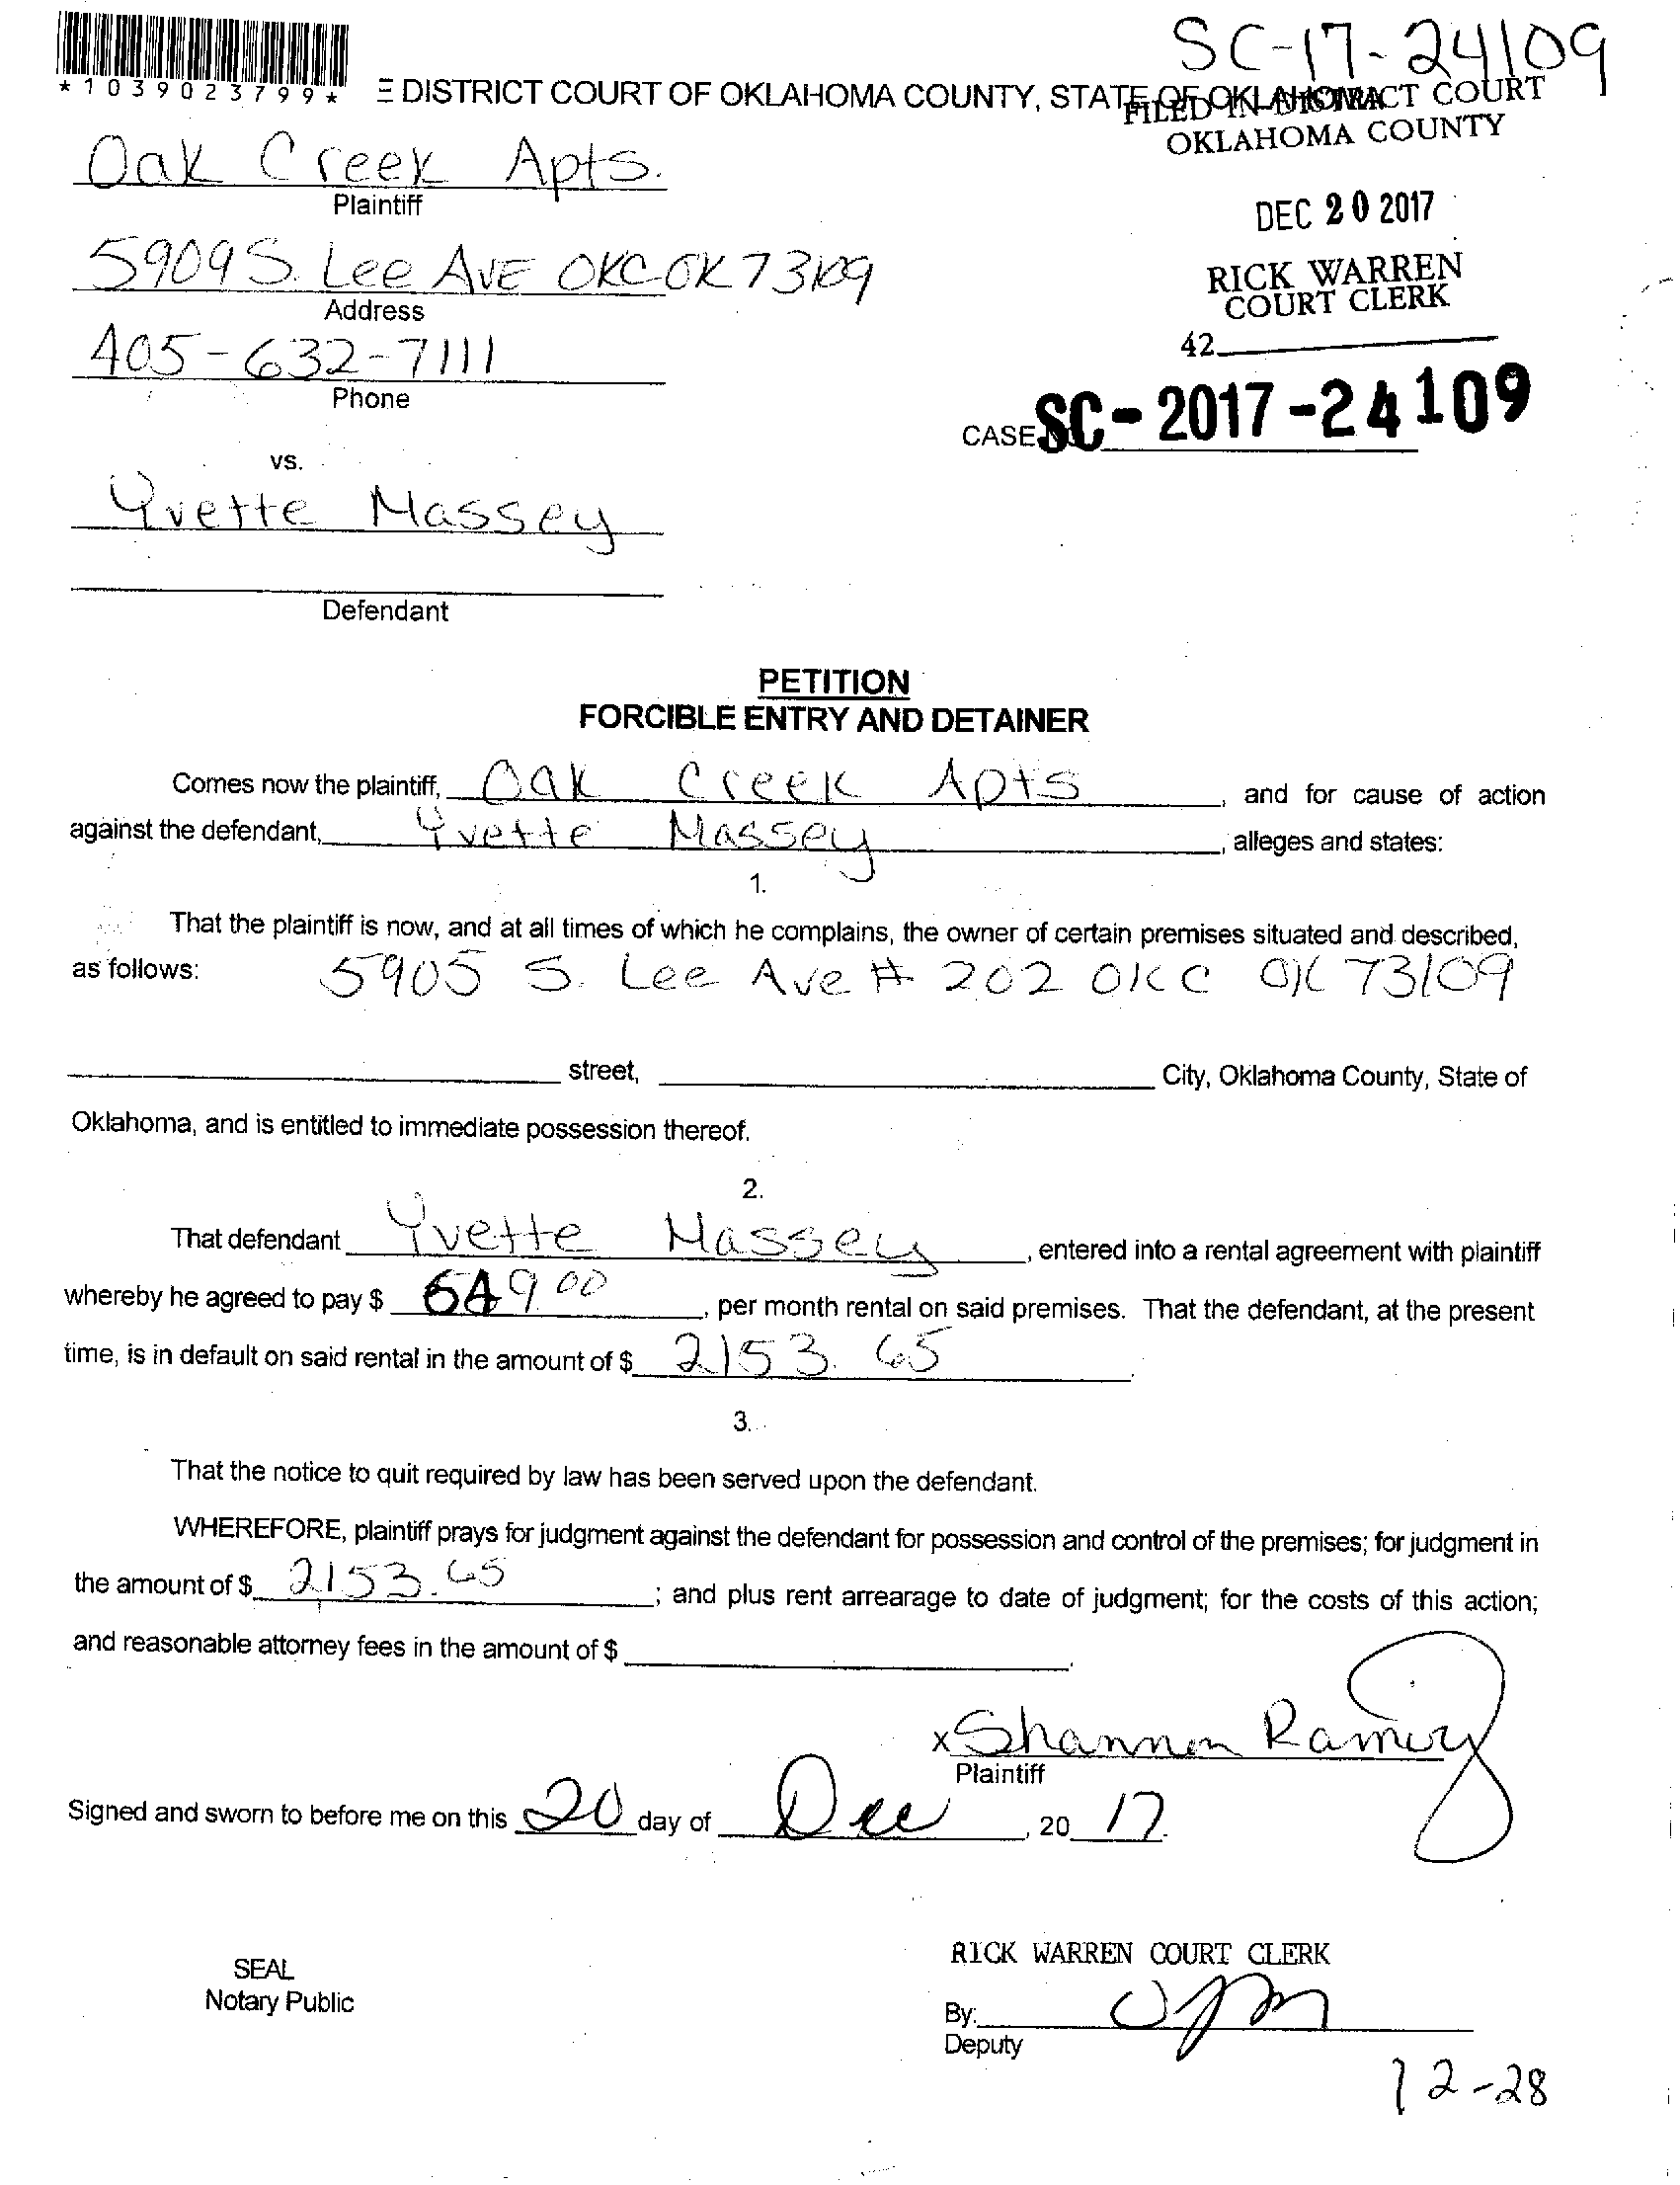 SC-17-24109
*1039023799*
E DISTRICT COURT OF OKLAHOMA COUNTY, STATE OF OKLAHOMA
FILED IN DISTRICT COURT
OKLAHOMA COUNTY
Oak Creek Apts.
Plaintiff
DEC 20 2017
5909 S. Lee AVE OKC OK 73109
Address
RICK WARREN
COURT CLERK
405-632-7111
Phone
42
CASE SC-2017-24109
vs.
Yvette Massey
Defendant
PETITION
FORCIBLE ENTRY AND DETAINER
Comes now the plaintiff, Oak Creek Apts, and for cause of action
against the defendant, Yvette Massey, alleges and states:
1.
That the plaintiff is now, and at all times of which he complains, the owner of certain premises situated and described,
as follows: 5905 S. Lee Ave # 202 OKC OK 73109
street, City, Oklahoma County, State of
Oklahoma, and is entitled to immediate possession thereof.
2.
That defendant Yvette Massey, entered into a rental agreement with plaintiff
whereby he agreed to pay $ 649.00, per month rental on said premises. That the defendant, at the present
time, is in default on said rental in the amount of $ 2153.65.
3.
That the notice to quit required by law has been served upon the defendant.
WHEREFORE, plaintiff prays for judgment against the defendant for possession and control of the premises; for judgment in
the amount of $ 2153.65; and plus rent arrearage to date of judgment; for the costs of this action;
and reasonable attorney fees in the amount of $ .
x Shannon Ramirez
Plaintiff
Signed and sworn to before me on this 20 day of Dec, 20 17.
RICK WARREN COURT CLERK
SEAL
Notary Public
By:
Deputy
12-28